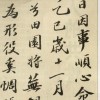 日因事順心命
乙巳歲十一月
兮田園將蕪
為形役奚惆悵